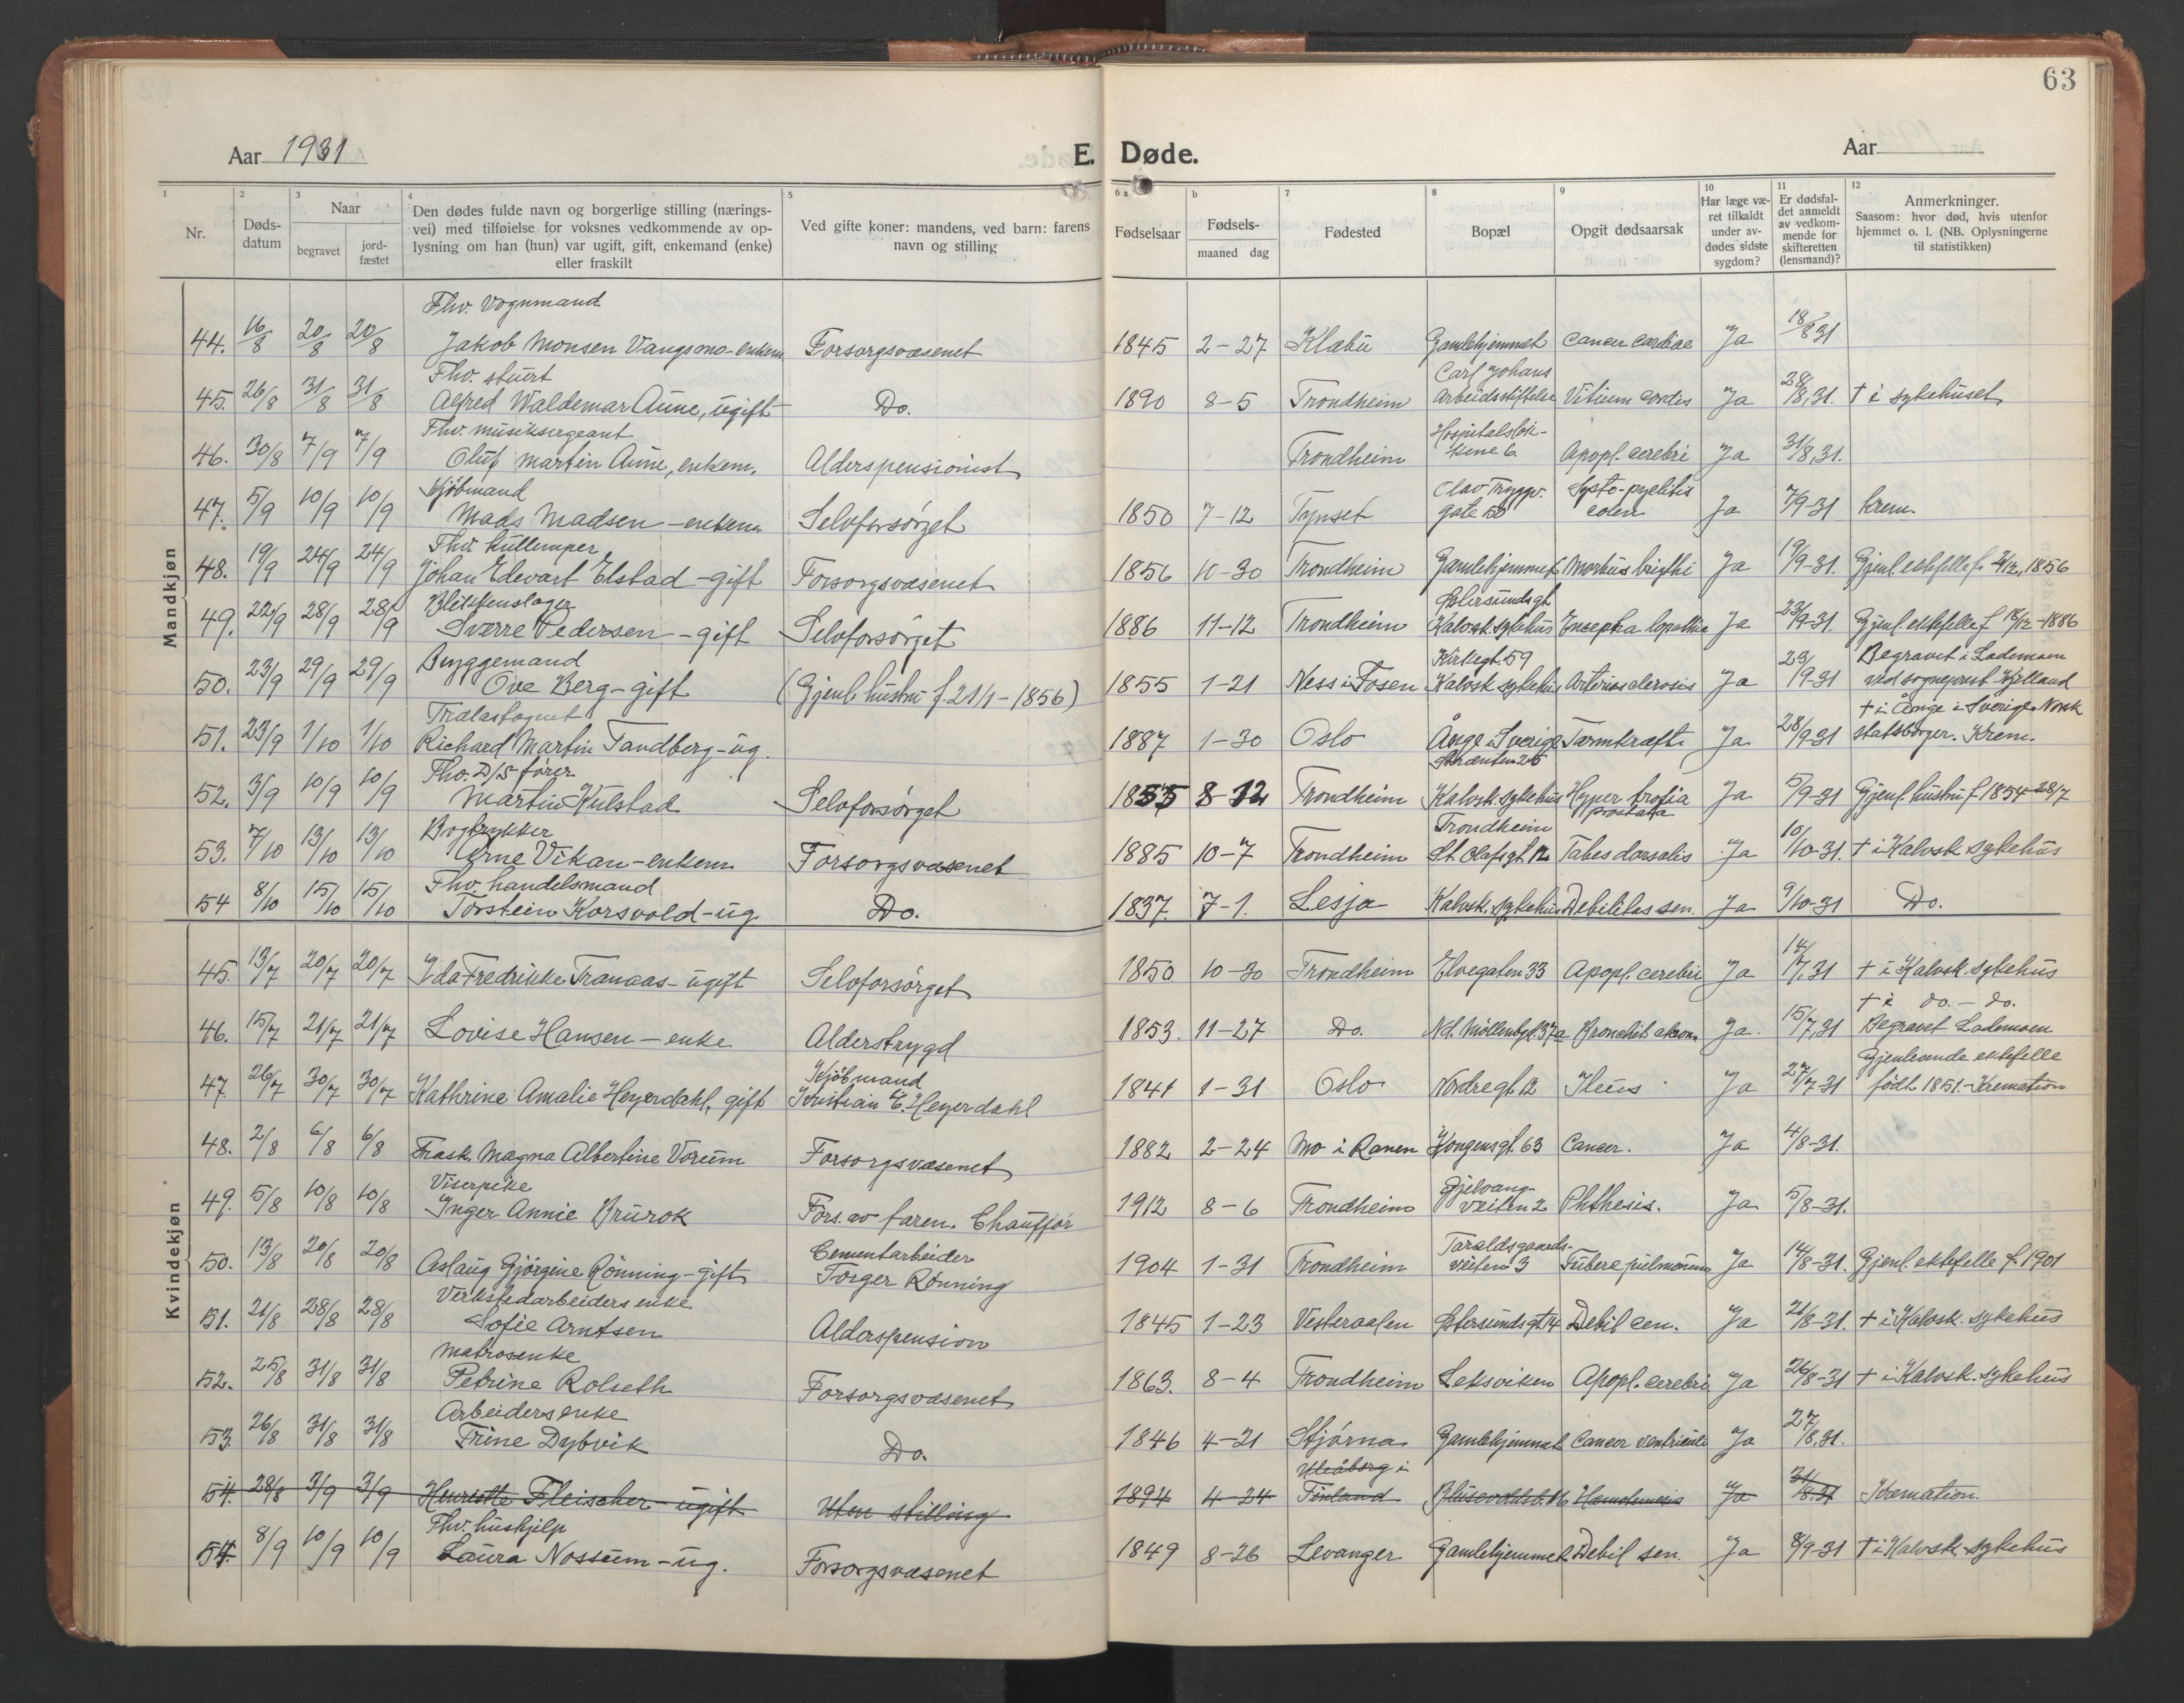 63
Aar 1931 E. Døde. Aar
1 2 3 4 5 6 a b 7 8 9 10 11 12
Nr. Døds-datum Naar begravet jord-fæstet Den dødes fulde navn og borgerlige stilling (nærings-vei) med tilføielse for voksnes vedkommende av op-lysning om han (hun) var ugift, gift, enkemand (enke) eller fraskilt Ved gifte koner: mandens, ved barn: farens navn og stilling Fødselsaar Fødsels-maaned dag Fødested Bopæl Opgit dødsaarsak Har læge væ-ret tilkaldt under av-dødes sidste sygdom? Er dødsfal-det anmeldt av vedkom-mende for skifteretten (lensmand)? Anmerkninger. Saasom: hvor død, hvis utenfor hjemmet o. l. (NB. Oplysningerne til statistikken)
Mandkjøn
Fhv. Vognmand
44. 16/8 20/8 20/8 Jakob Monsen Vangsmo-enkem Forsorgsvæsenet 1845 2-27 Klæbu Gamlehjemmet Cancer cardiae Ja 18/8 31
Fhv. stuert Carl Johans
45. 26/8 31/8 31/8 Alfred Waldemar Aune, ugift Do. 1890 8-5 Trondheim Arbeidsstiftelse Vitium cordis Ja 28/8,31. † i sykehuset
Fhv. musiksergeant Hospitalsløk-
46. 30/8 7/9 7/9 Oluf Martin Aune, enkem. Alderspensionist Trondheim kene 6 Apopl. cerebri Ja 31/8,31.
Kjøbmand Olav Tryggv. Systo-pyelitis
47. 5/9 10/9 10/9 Mads Madsen-enkem Selvforsørget 1850 7-12 Tynset gate 50 colen Ja 7/9-31 krem.
Fhv. kullemper
48. 19/9 24/9 24/9 Johan Edevart Elstad-gift Forsorgsvæsenet 1856 10-30 Trondheim Gamlehjemmet Morbus brigthi Ja 19/9-31. Gjenl. ektefelle f. 2/12, 1856
Blikkenslager Østersundsgt.
49. 22/9 28/9 28/9 Sverre Pedersen-gift Selvforsørget 1886 11-12 Trondheim Kalvsk. sykehus Ja 23/9-31. Gjenl. ektefelle f 18/12-1886
Bryggemand Kirkegt. 59 Begravet i Lademoen
50. 23/9 29/9 29/9 Ove Berg-gift (Gjenl. hustru f. 21/1-1856) 1855 1-21 Ness i Fosen Kalvsk sykehus Arteriosclerosis Ja 23/9-31 ved sogneprest Kjelland
Trælastagent † i Ånge i Sverige. Norsk
51. 23/9 1/10 1/10 Richard Martin Tandberg-ug. 1887 1-30 Oslo Ånge i Sverige Tarmkræft Ja 28/9-31 statsborger. Krem.
Fhv. D/S fører Skrænten 25
52. 3/9 10/9 10/9 Martin Kulstad Selvforsørget 1855 8-12 Trondheim Kalvsk. sykehus Hyper trofia prostata Ja 5/9-31 Gjenl. hustru f 1854-28/7
Bogtrykker Trondheim
53. 7/10 13/10 13/10 Arne Vikan-enkem Forsorgsvæsenet 1885 10-7 Trondheim St. Olafsgt. 12 Tabes dorsalis Ja 10/10-31. † i Kalvsk sykehus
Fhv. handelsmand
54 8/10 15/10 15/10 Torstein Korsvold-ug. Do. 1837. 7-1. Lesja Kalvsk. sykehus Debilitas sen. Ja 9/10-31 Do.
Kvindekjøn
45. 13/7 20/7 20/7 Ida Fredrikke Tranaas-ugift Selvforsørget 1850 10-30 Trondheim Elvegaten 33 Apopl. cerebri Ja 14/7,31 † i Kalvsk. sykehus
† i do.-do.
46. 15/7 21/7 21/7 Lovise Hansen-enke Alderstrygd 1853. 11-27 Do. Nd. Møllenbgt. 37a Bronchit chron. Ja. 15/7,31 Begravet Lademoen
Kjøbmand Gjenlevende ektefelle
47. 26/7 30/7 30/7 Kathrine Amalie Heyerdahl, gift Kristian E. Heyerdahl 1841 1-31 Oslo Nordregt. 12 Ileus Ja 27/7-31 født 1851.-Kremation
48. 2/8 6/8 6/8 Frask. Magna Albertine Vorum Forsorgsvæsenet 1882 2-24 Mo i Ranen Kongensgt. 63 Cancer. Ja 4/8-31.
Viserpike Gjelvang-
49. 5/8 10/8 10/8 Inger Annie Brurok Fors. av faren. Chauffør 1912 8-6 Trondheim veiten 2 Phthesis. Ja 5/8-31.
Cementarbeider Taraldsgaards-
50. 13/8 20/8 20/8 Aslaug Gjørgine Rønning-gift Torger Rønning 1904 1-31 Trondheim veiten 3 Tubere pulmonum Ja 14/8-31. Gjenl. ektefelle f. 1901
Verkstedarbeiders enke
51. 21/8 28/8 28/8 Sofie Arntsen Alderspension 1845 1-23 Vesteraalen Østersundsgt. 14 Debil cen. Ja 21/8-31. † i Kalvsk. sykehus
Matrosenke
52. 25/8 31/8 31/8 Petrine Rolseth Forsorgsvæsenet 1863. 8-4 Trondheim Leksviken Apopl. cerebri Ja 26/8-31 † i Kalvsk. sykehus
Arbeidersenke
53. 26/8 31/8 31/8 Trine Dybvik Do. 1846 4-21 Stjørna Gamlehjemmet Cancer ventriculi Ja 27/8,31.
Uleåborg i
54. 28/8 3/9 3/9 Henriette Fleischer-ugift Uten stilling 1894 4-24 Finland Hæmatemesis Ja 31/8.31 Kremation.
Fhv. huskjelp
54. 8/9 10/9 10/9 Laura Nossum-ug. Forsorgsvæsenet 1849 8-26 Levanger Gamlehjemmet Debil sen. Ja 8/9-31 † i Kalvsk. sykehus